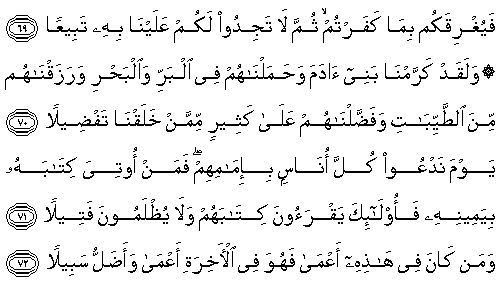 فَيُغْرِقَكُم بِمَا كَفَرْتُمْ ۙ ثُمَّ لَا تَجِدُوا۟ لَكُمْ عَلَيْنَا بِهِۦ تَبِيعًا ٦٩
۞ وَلَقَدْ كَرَّمْنَا بَنِىٓ ءَادَمَ وَحَمَلْنَـٰهُمْ فِى ٱلْبَرِّ وَٱلْبَحْرِ وَرَزَقْنَـٰهُم
مِّنَ ٱلطَّيِّبَـٰتِ وَفَضَّلْنَـٰهُمْ عَلَىٰ كَثِيرٍ مِّمَّنْ خَلَقْنَا تَفْضِيلًا ٧٠
يَوْمَ نَدْعُوا۟ كُلَّ أُنَاسٍۭ بِإِمَـٰمِهِمْ ۖ فَمَنْ أُوتِىَ كِتَـٰبَهُۥ
بِيَمِينِهِۦ فَأُو۟لَـٰٓئِكَ يَقْرَءُونَ كِتَـٰبَهُمْ وَلَا يُظْلَمُونَ فَتِيلًا ٧١
وَمَن كَانَ فِى هَـٰذِهِۦٓ أَعْمَىٰ فَهُوَ فِى ٱلْـَٔاخِرَةِ أَعْمَىٰ وَأَضَلُّ سَبِيلًا ٧٢